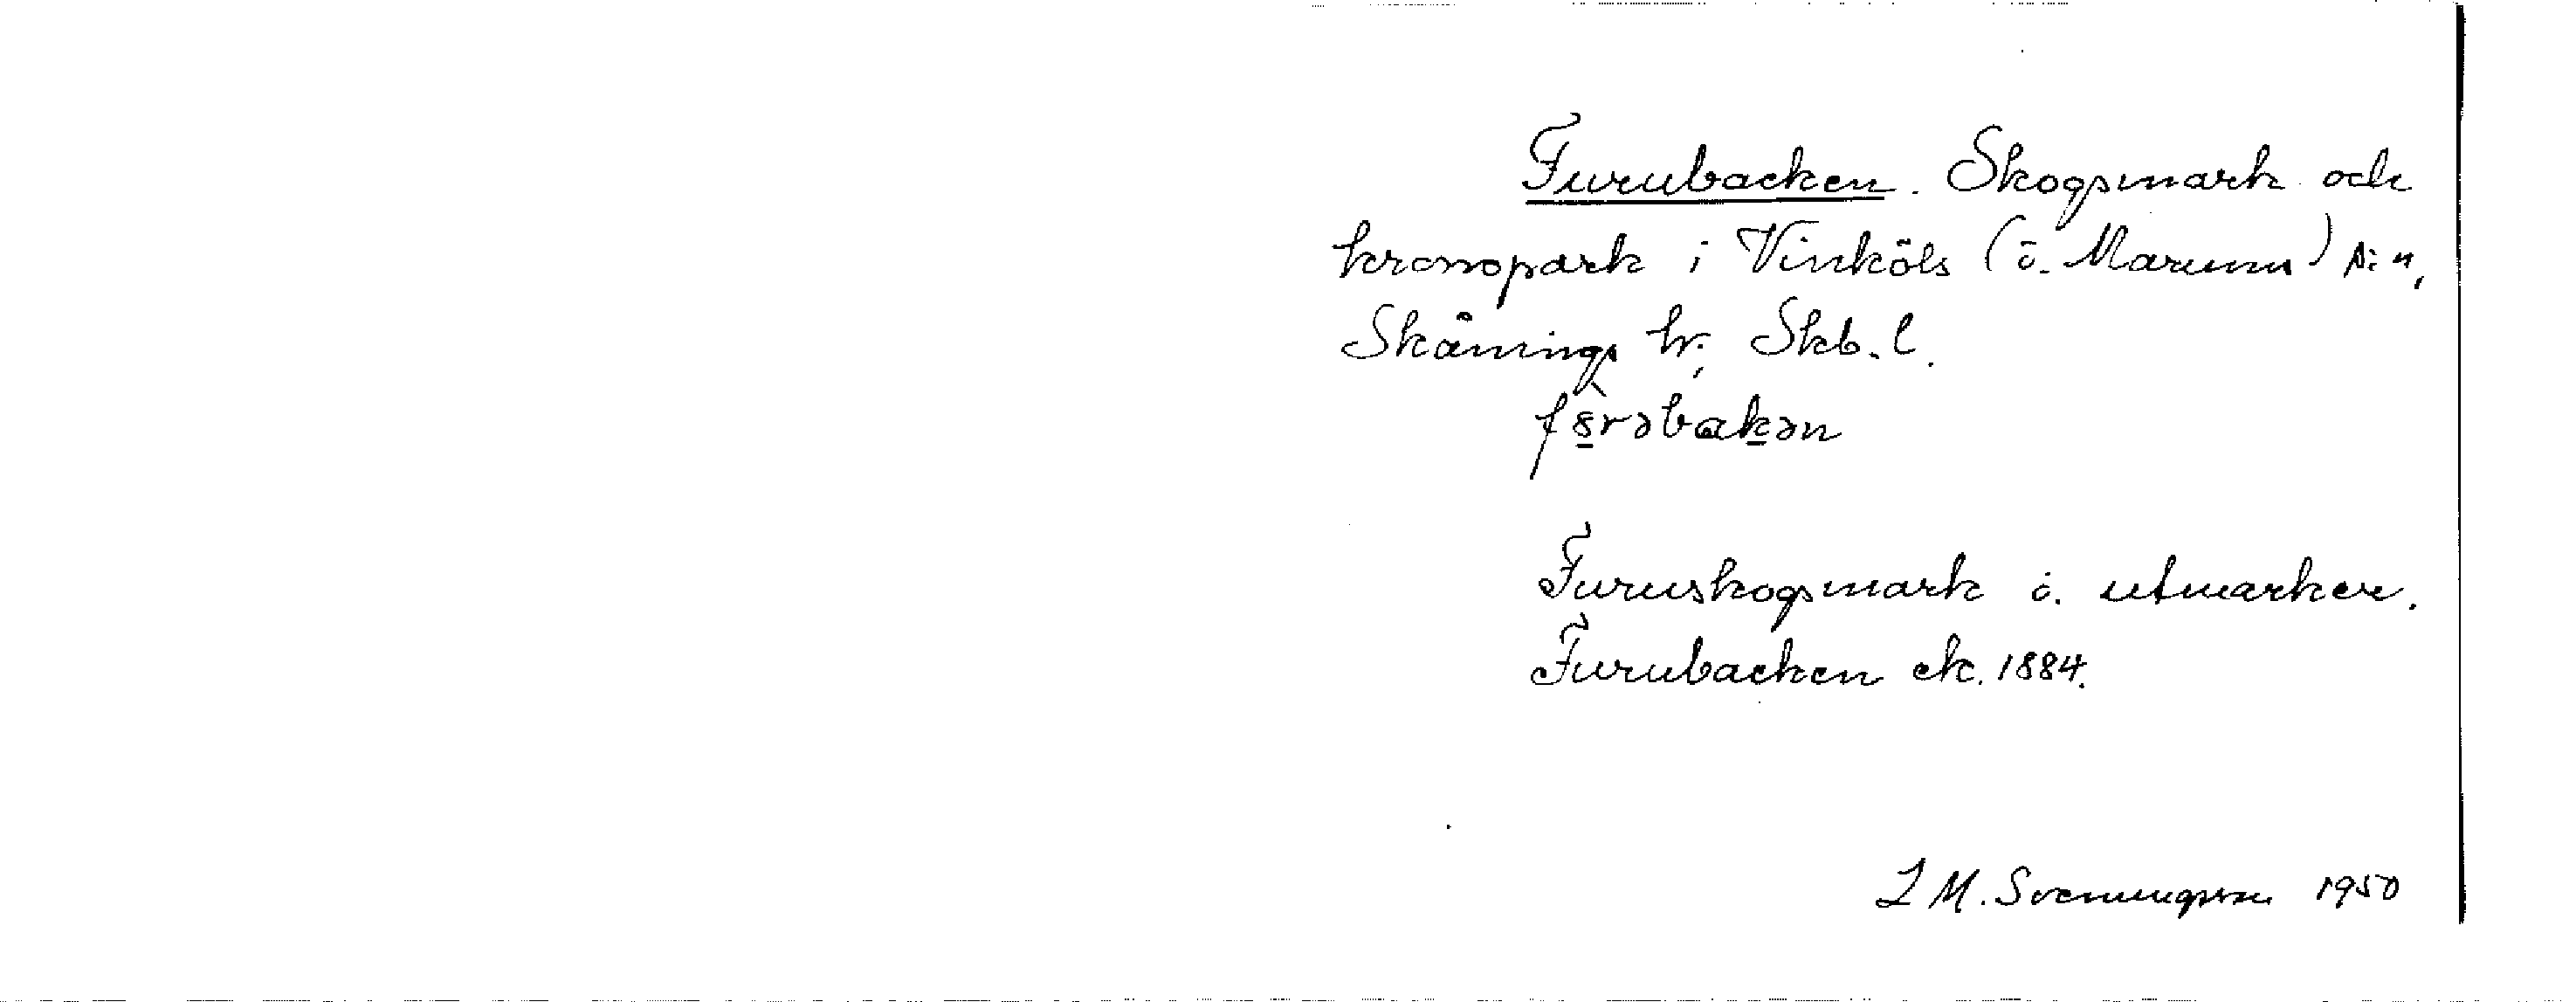 Furubacken. Skogsmark och
kronopark i Vinköls (ö. Marum) s:n,
Skånings hr, Skb. l.
fɤ̀rəbakən
Furuskogsmark ö. utmarker.
Furubacken ek. 1884.
L M. Svenungsson 1950